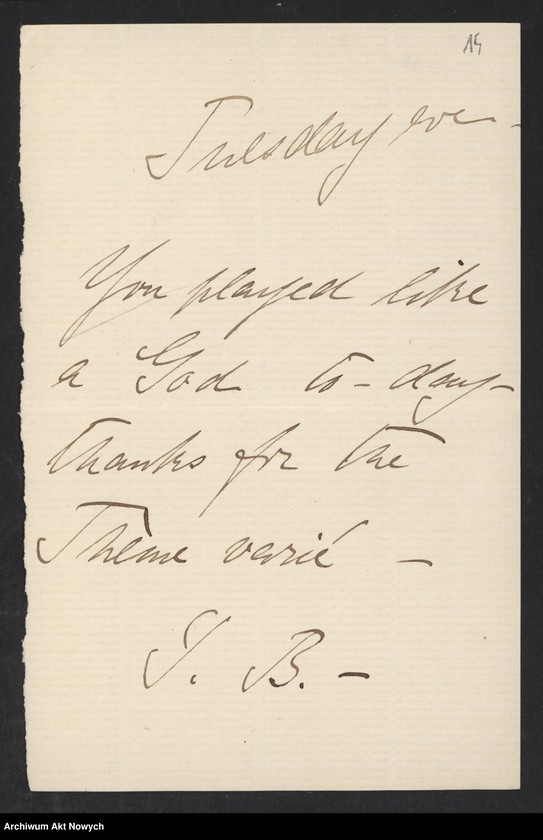 19
Tuesday eve -
You played like
a God to-day -
thanks for the
Thème varié -
S. B. -
Archiwum Akt Nowych